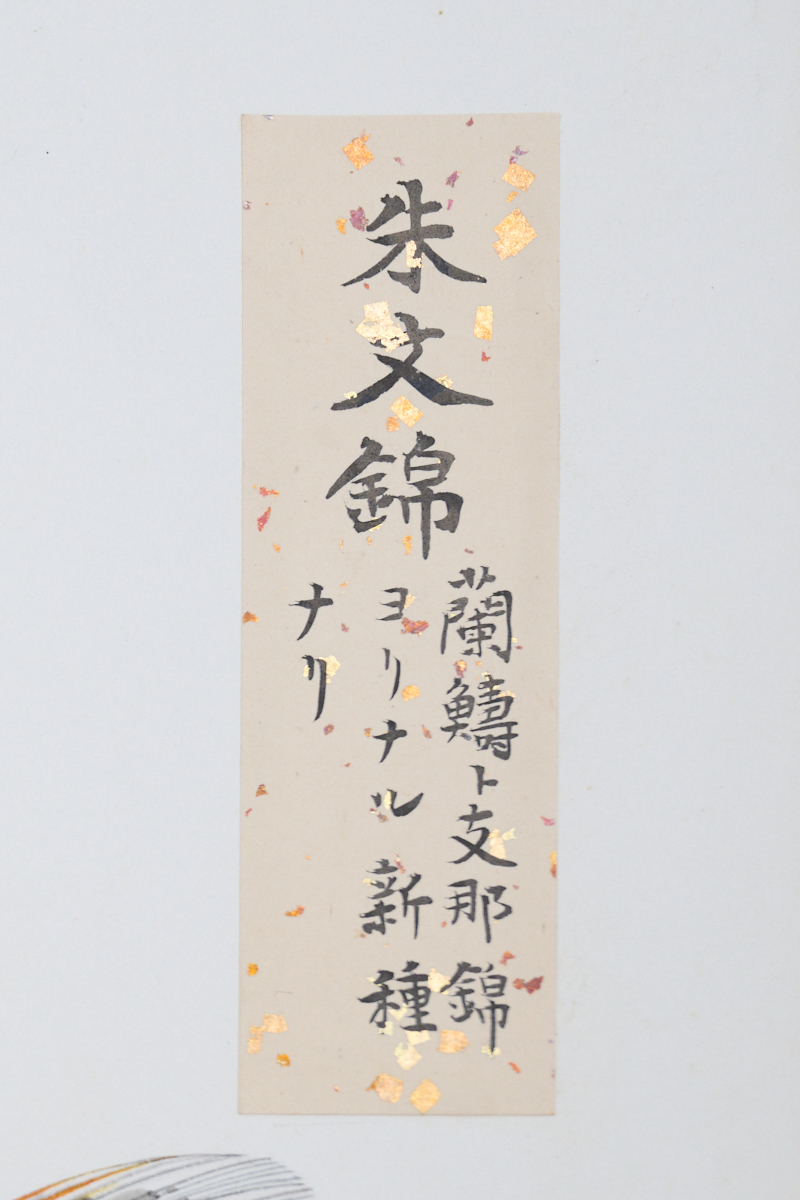 朱文錦
蘭鑄ト支那錦
ヨリナル新種
ナリ